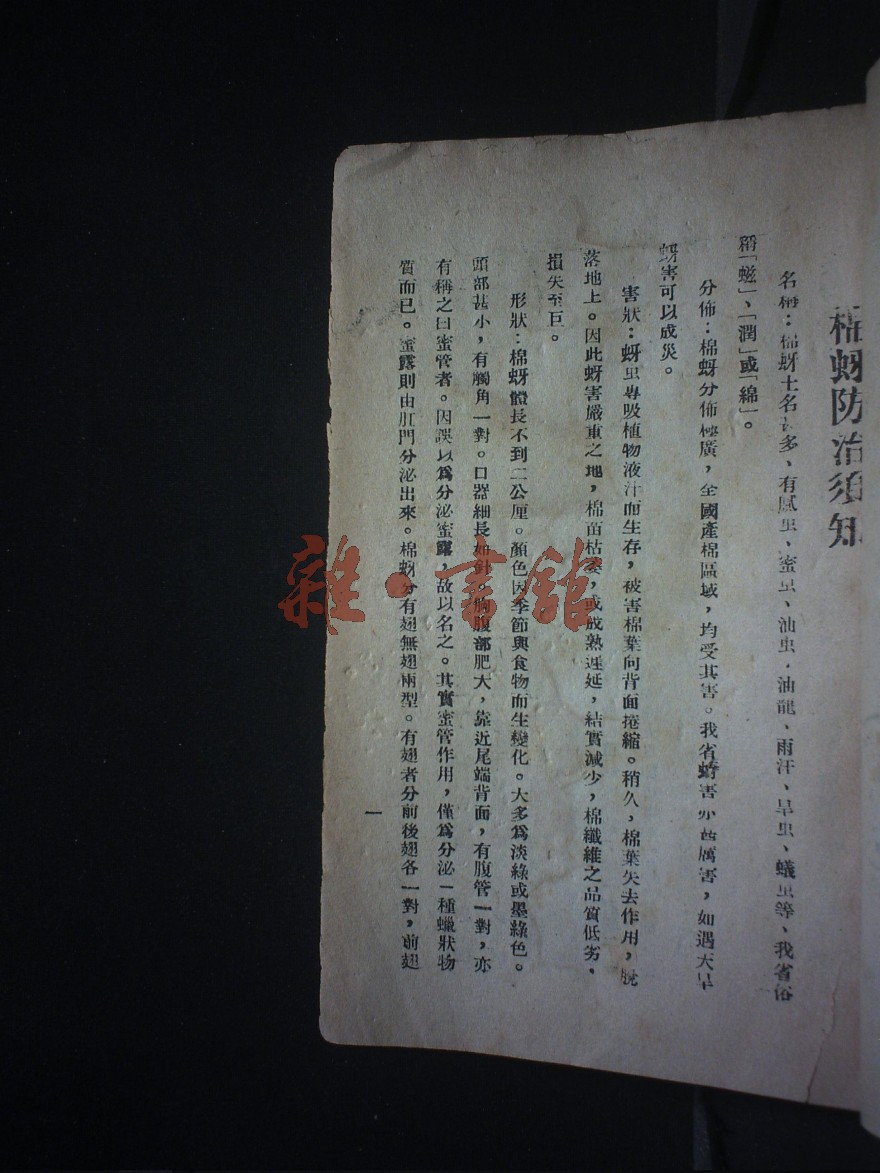 棉蚜防治須知
名稱：棉蚜土名甚多、有膩虫、蜜虫、油虫、油龍、雨汗、旱虫、蟻虫等、我省俗
稱「蟣」、「潤」或「綿」。
分佈：棉蚜分佈極廣，全國產棉區域，均受其害。我省蚜害亦甚厲害，如遇大旱
蚜害可以成災。
害狀：蚜虫專吸植物液汁而生存，被害棉葉向背面捲縮。稍久，棉葉失去作用，脫
落地上。因此蚜害嚴重之地，棉苗枯萎，或成熟遲延，結實減少，棉纖維之品質低劣，
損失至巨。
形狀：棉蚜體長不到二公厘。顏色因季節與食物而生變化。大多為淡綠或墨綠色。
頭部甚小，有觸角一對。口器細長如針。胸腹部肥大，靠近尾端背面，有腹管一對，亦
有稱之曰蜜管者。因誤以為分泌蜜露，故以名之。其實蜜管作用，僅為分泌一種蠟狀物
質而已。蜜露則由肛門分泌出來。棉蚜分有翅無翅兩型。有翅者分前後翅各一對，前翅
一
雜·書館